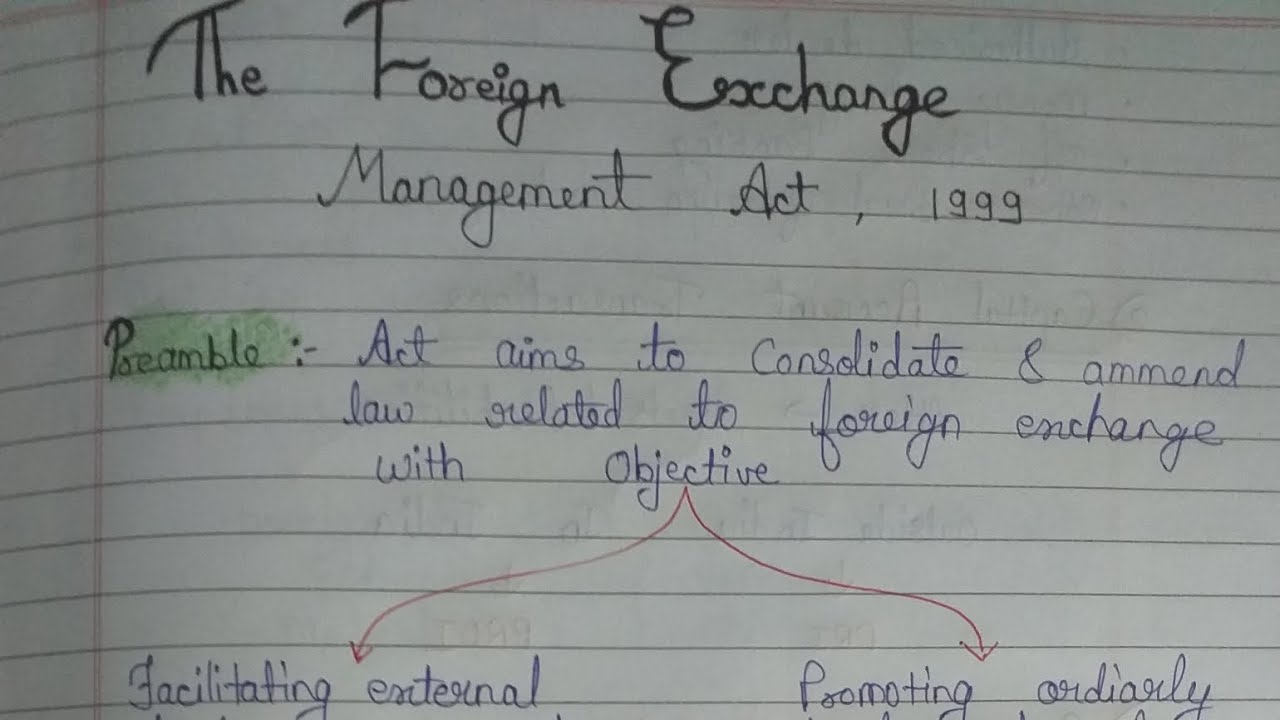 The Foreign Exchange
Management Act, 1999
Preamble :- Act aims to Consolidate & ammend
law related to foreign exchange
with Objective
Facilitating external
Promoting ordiarly